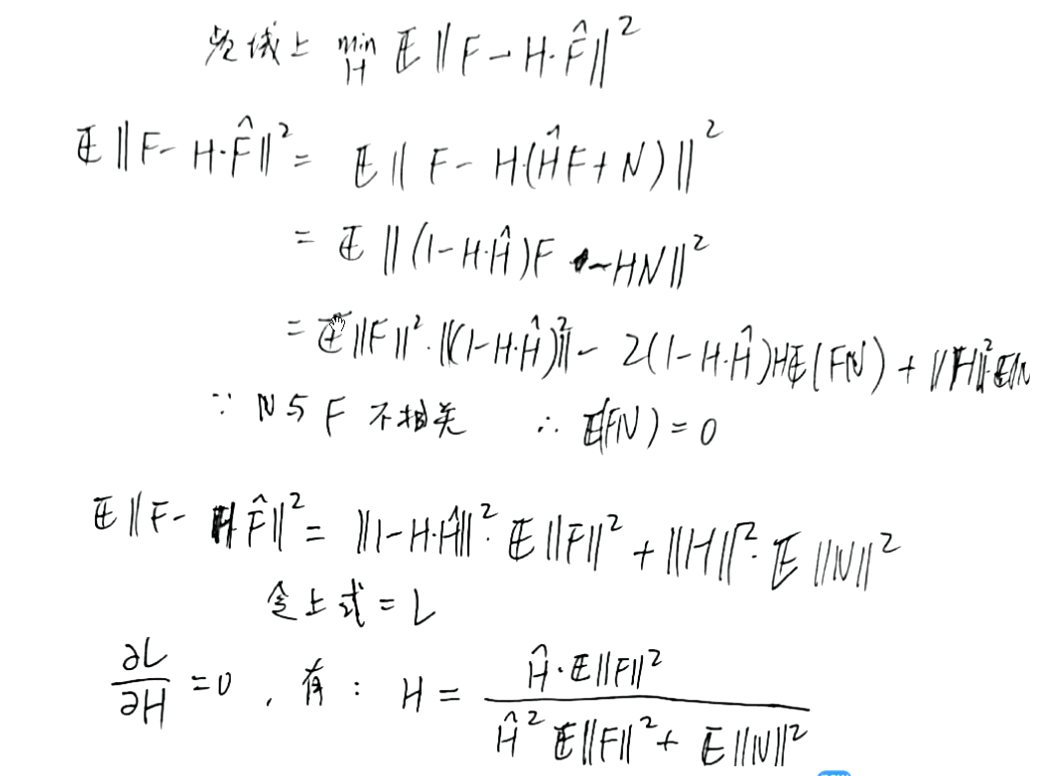 频域上 min_H 𝔼‖F-H·F̂‖²
𝔼‖F-H·F̂‖² = 𝔼‖F-H(ĤF+N)‖²
= 𝔼‖(1-H·Ĥ)F-HN‖²
= 𝔼‖F‖²·‖(1-H·Ĥ)‖² - 2(1-H·Ĥ)H𝔼(FN) + ‖H‖²𝔼‖N
∵ N与F不相关 ∴ 𝔼(FN)=0
𝔼‖F-HF̂‖² = ‖1-H·Ĥ‖²·𝔼‖F‖² + ‖H‖²·𝔼‖N‖²
令上式=L
∂L/∂H = 0, 有: H = Ĥ·𝔼‖F‖² / (Ĥ²𝔼‖F‖² + 𝔼‖N‖²)